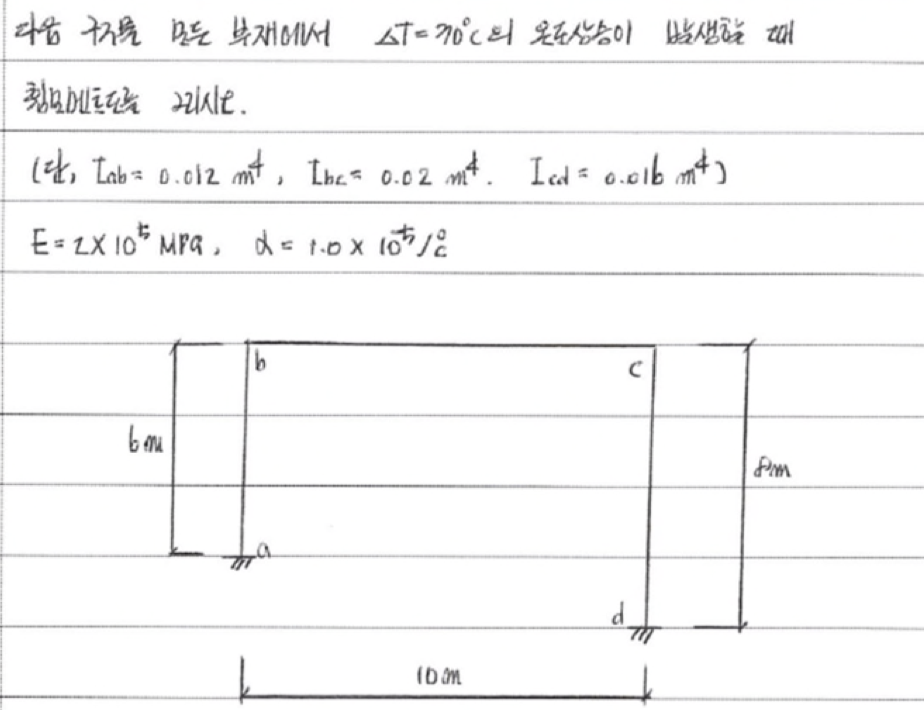 다음 구조물 모든 부재에서 ΔT=70°C의 온도상승이 발생할 때
휨모멘트도를 그리시오.
(단, Iab= 0.012 m⁴, Ibc= 0.02 m⁴. Icd = 0.016 m⁴)
E=2X10⁵ MPa, α= 1.0 x 10⁻⁵/°c
b c
6m
8m
a
d
10m